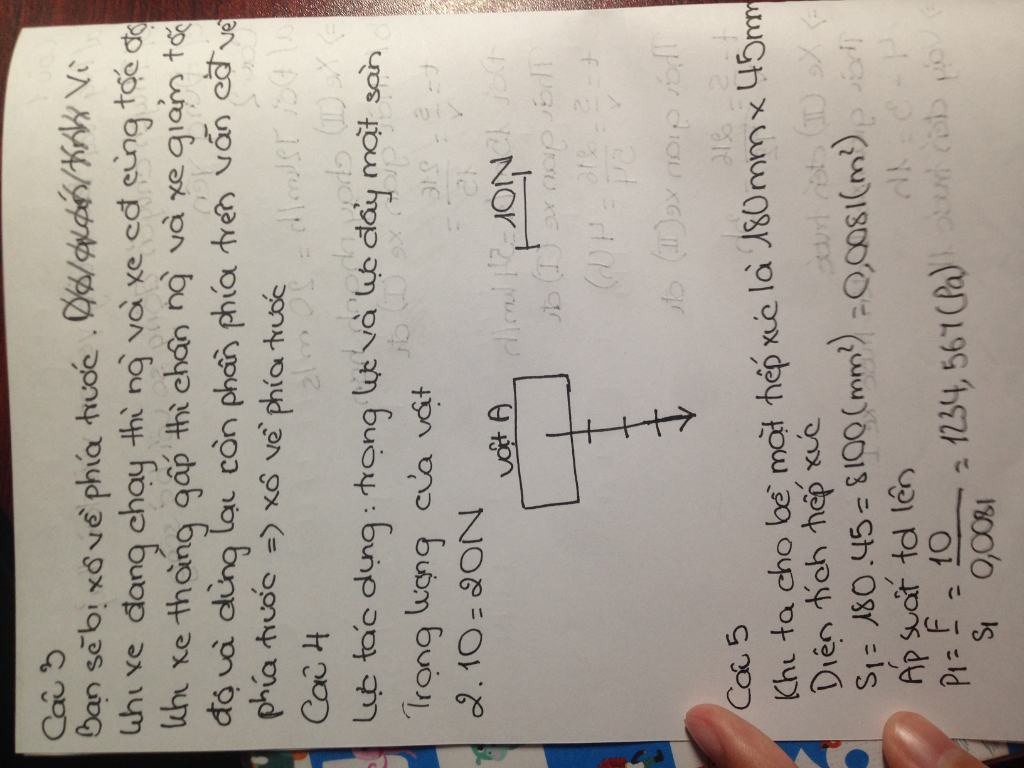 Câu 3
Bạn sẽ bị xô về phía trước. Vì
khi xe đang chạy thì ng và xe cđ cùng tốc độ
Khi xe thắng gấp thì chân ng và xe giảm tốc
độ và dừng lại còn phần phía trên vẫn cđ về
phía trước => xô về phía trước
Câu 4
Lực tác dụng: trọng lực và lực đẩy mặt sàn
Trọng lượng của vật
2.10 = 20N
vật A
10N
Câu 5
Khi ta cho bề mặt tiếp xúc là 180mm x 45mm
Diện tích tiếp xúc
S1 = 180.45 = 8100(mm²) = 0,0081(m²)
Áp suất td lên
P1 = F/S1 = 10/0,0081 = 1234,567(Pa)